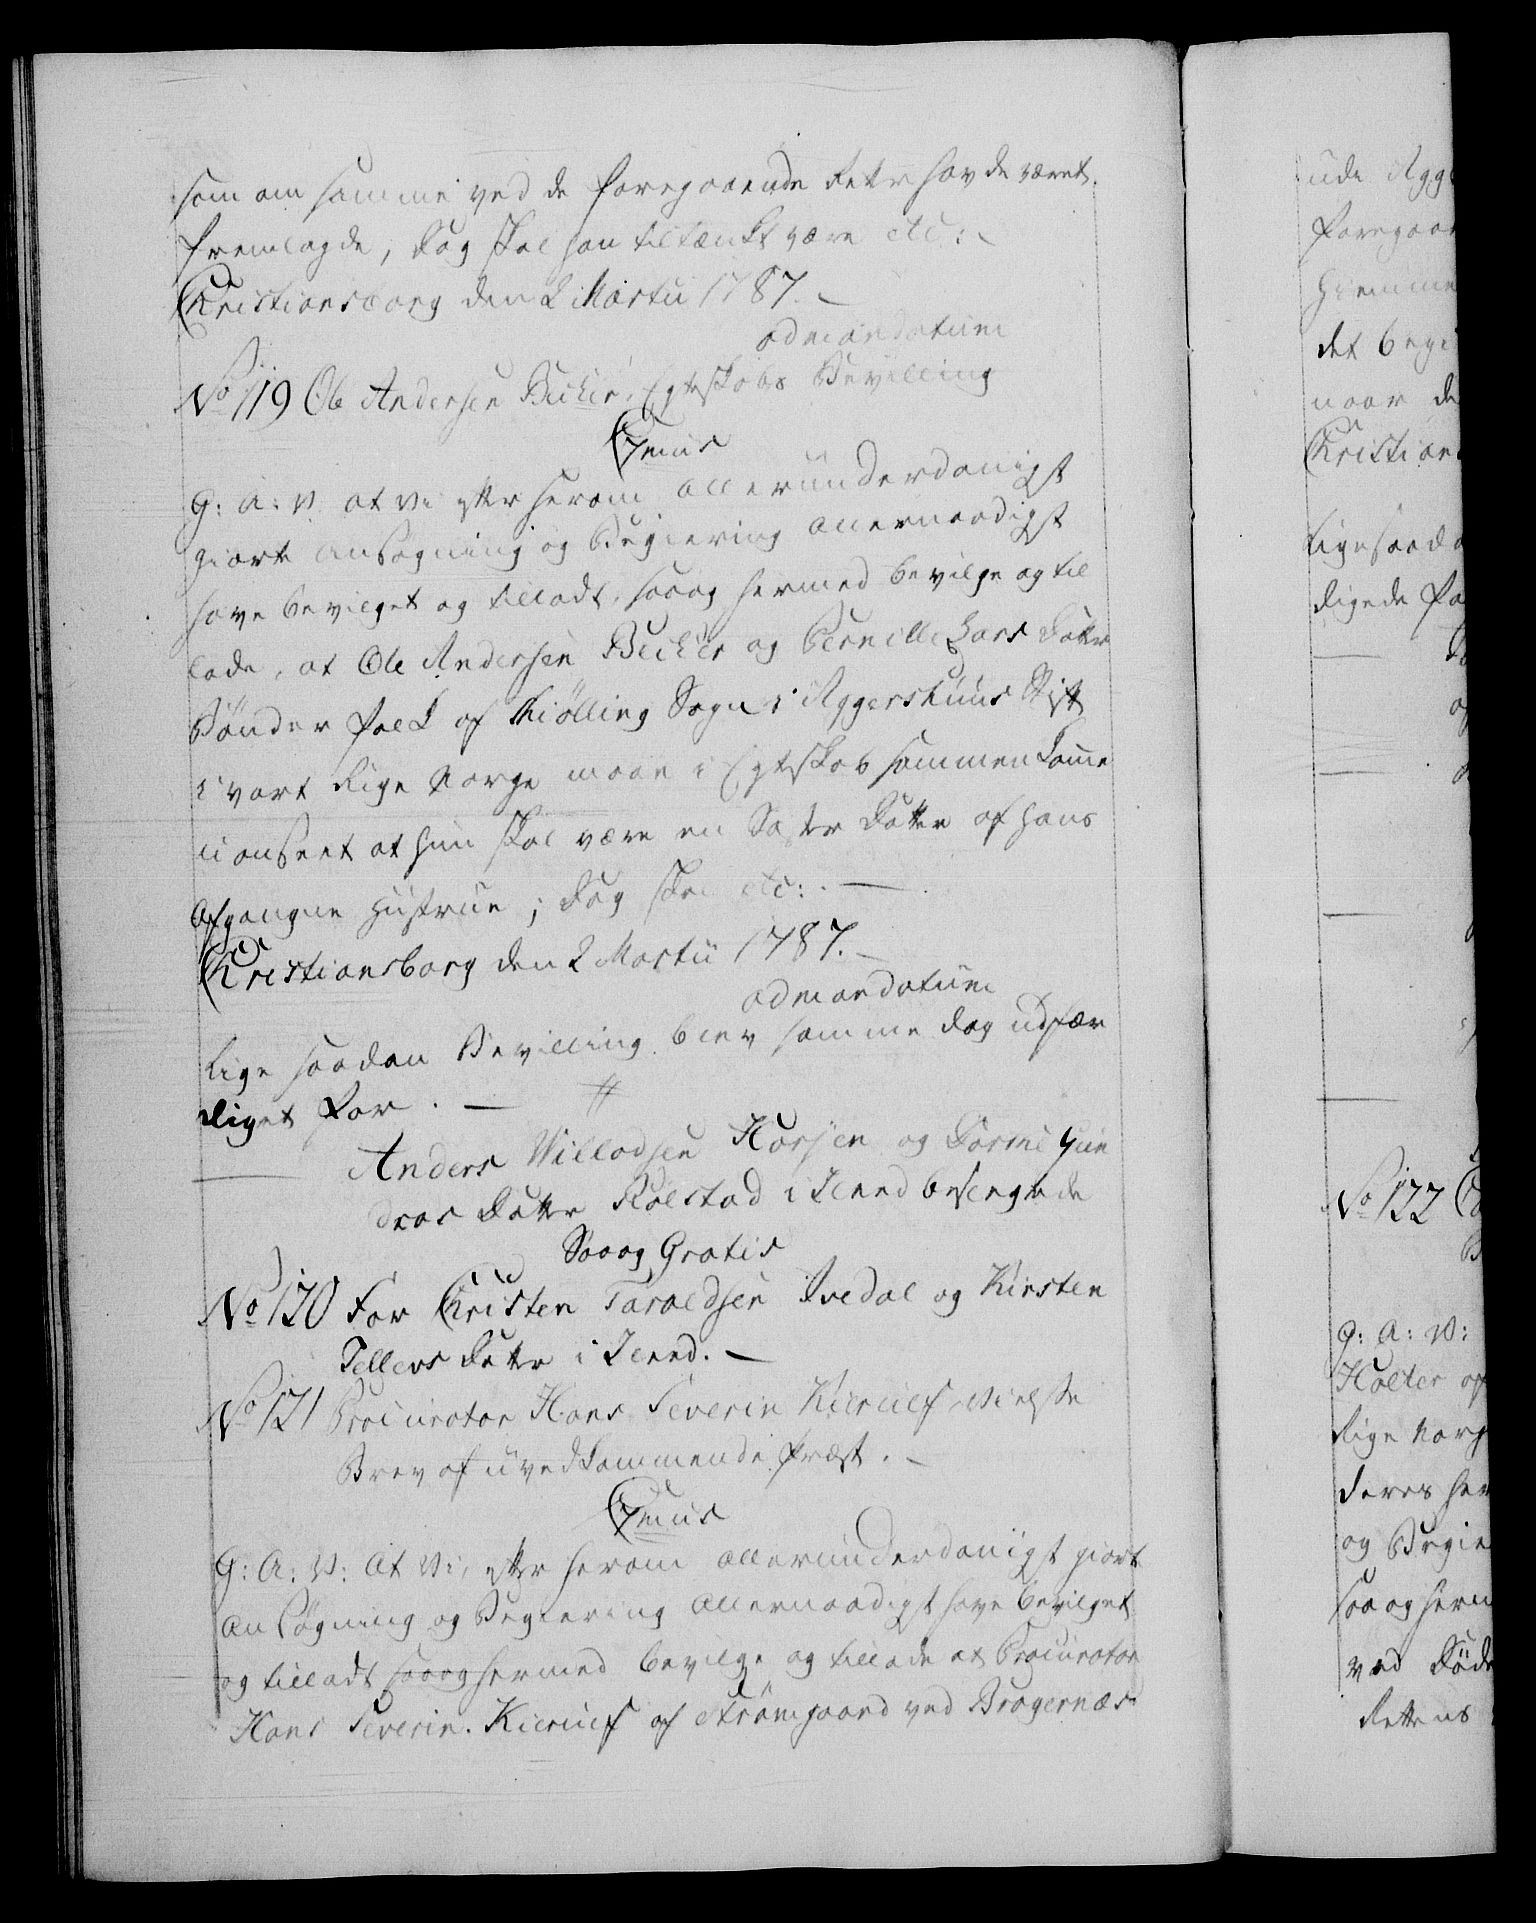 som om samme ved de foregaaende Retter havde været
fremlagde, dog skal han tiltænkt være etc:
Christiansborg den 2 Martii 1787.
ad mandatum
No 119 Ole Andersen Becker, Egteskabs Bevilling
C 7mus
G: A: V. at vi efter herom allerunderdanigst
giorte Ansøgning og Begiering allernaadigst
have bevilget og tilladt, saa og hermed bevilge og til
lade, at Ole Andersen Becker og Pernille Lars Datter
Bønder Folk af Kiølling Sogn i Aggershuus Stift
i vort Rige Norge maae i Egteskab sammenkomme
uanseet at hun skal være en Søster Datter af hans
Afgangne Hustrue; dog skal etc:.
Christiansborg den 2 Martii 1787.
ad mandatum
Lige saadan Bevilling blev samme dag udfær
diget for.
Anders Willadsen Korsen og Dorthe Gun
ders Datter Rolstad i Jenner besengede
Saa og Gratis
No 120 For Christen Taraldsen Tvedal og Kirsten
Tellevs Datter i Jenner.
No 121 Procurator Hans Severin Kierulf, Vielse
Brev af uvedkommende Præst.
C 7mus
G: A: V: At vi, efter herom allerunderdanigst giort
Ansøgning og Begiering allernaadigst have bevilget
og tilladt saa og hermed bevilge og tillade at Procurator
Hans Severin Kierulf af Strømgaard ved Bragernæs
ude Agge
foregaae
hiemme
det begi
naar de
Christian
Ligesaada
digede fo
No 122
G: A: V:
Holter af
Rige Norg
deres her
og Begie
saa og herm
ved Døde
Rettens